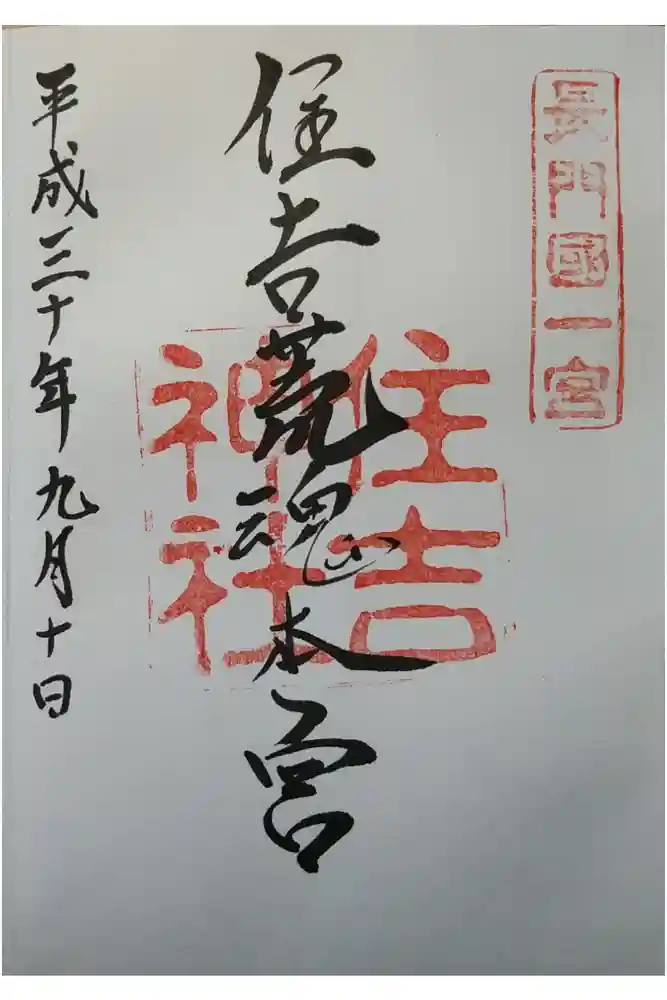 長門國一宮
住吉荒魂本宮
住吉
神社
平成三十年九月十日